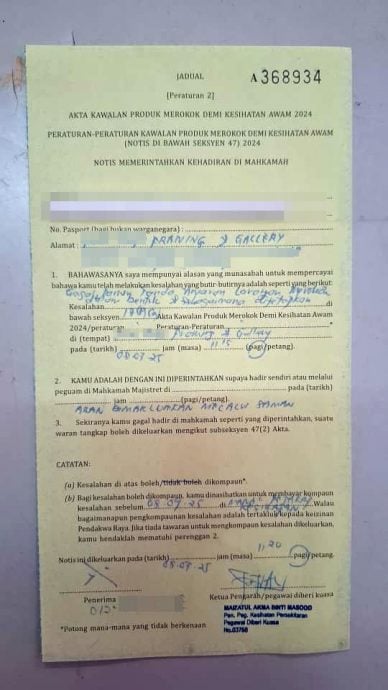 JADUAL
A 368934
[Peraturan 2]
AKTA KAWALAN PRODUK MEROKOK DEMI KESIHATAN AWAM 2024
PERATURAN-PERATURAN KAWALAN PRODUK MEROKOK DEMI KESIHATAN AWAM
(NOTIS DI BAWAH SEKSYEN 47) 2024
NOTIS MEMERINTAHKAN KEHADIRAN DI MAHKAMAH
No. Pasport (bagi bukan warganegara) :
Alamat : & GALLERY
1. BAHAWASANYA saya mempunyai alasan yang munasabah untuk mempercayai
bahawa kamu telah melakukan kesalahan yang butir-butirnya adalah seperti yang berikut:
Gagal Tanda Amaran Larangan Merokok
Kesalahan di
bawah seksyen Akta Kawalan Produk Merokok Demi Kesihatan Awam
2024/peraturan Peraturan-Peraturan *
di (tempat) &
pada (tarikh) jam (masa) 11.15 (pagi/petang).
08.09.25
2. KAMU ADALAH DENGAN INI DIPERINTAHKAN supaya hadir sendiri atau melalui
peguam di Mahkamah Majistret di pada (tarikh)
jam (pagi/petang).
AKAN DIMAKLUMKAN MELALUI SAMAN
3. Sekiranya kamu gagal hadir di mahkamah seperti yang diperintahkan, suatu
waran tangkap boleh dikeluarkan mengikut subseksyen 47(2) Akta.
CATATAN:
(a) Kesalahan di atas boleh/tidak boleh dikompaun*.
(b) Bagi kesalahan boleh dikompaun, kamu dinasihatkan untuk membayar kompaun
kesalahan sebelum 08.09.25 di Walau
bagaimanapun pengkompaunan kesalahan adalah tertakluk kepada keizinan
Pendakwa Raya. Jika tiada tawaran untuk mengkompaun kesalahan dikeluarkan,
kamu hendaklah mematuhi perenggan 2.
Notis ini dikeluarkan pada (tarikh) jam (masa) 11.20 pagi/petang.
08.09.25
Penerima
Ketua Pengarah/pegawai diberi kuasa
012-
MAIZATUL AKMA BINTI MASOOD
Pen. Peg. Kesihatan Persekitaran
Pegawai Diberi Kuasa
No.03758
*Potong mana-mana yang tidak berkenaan